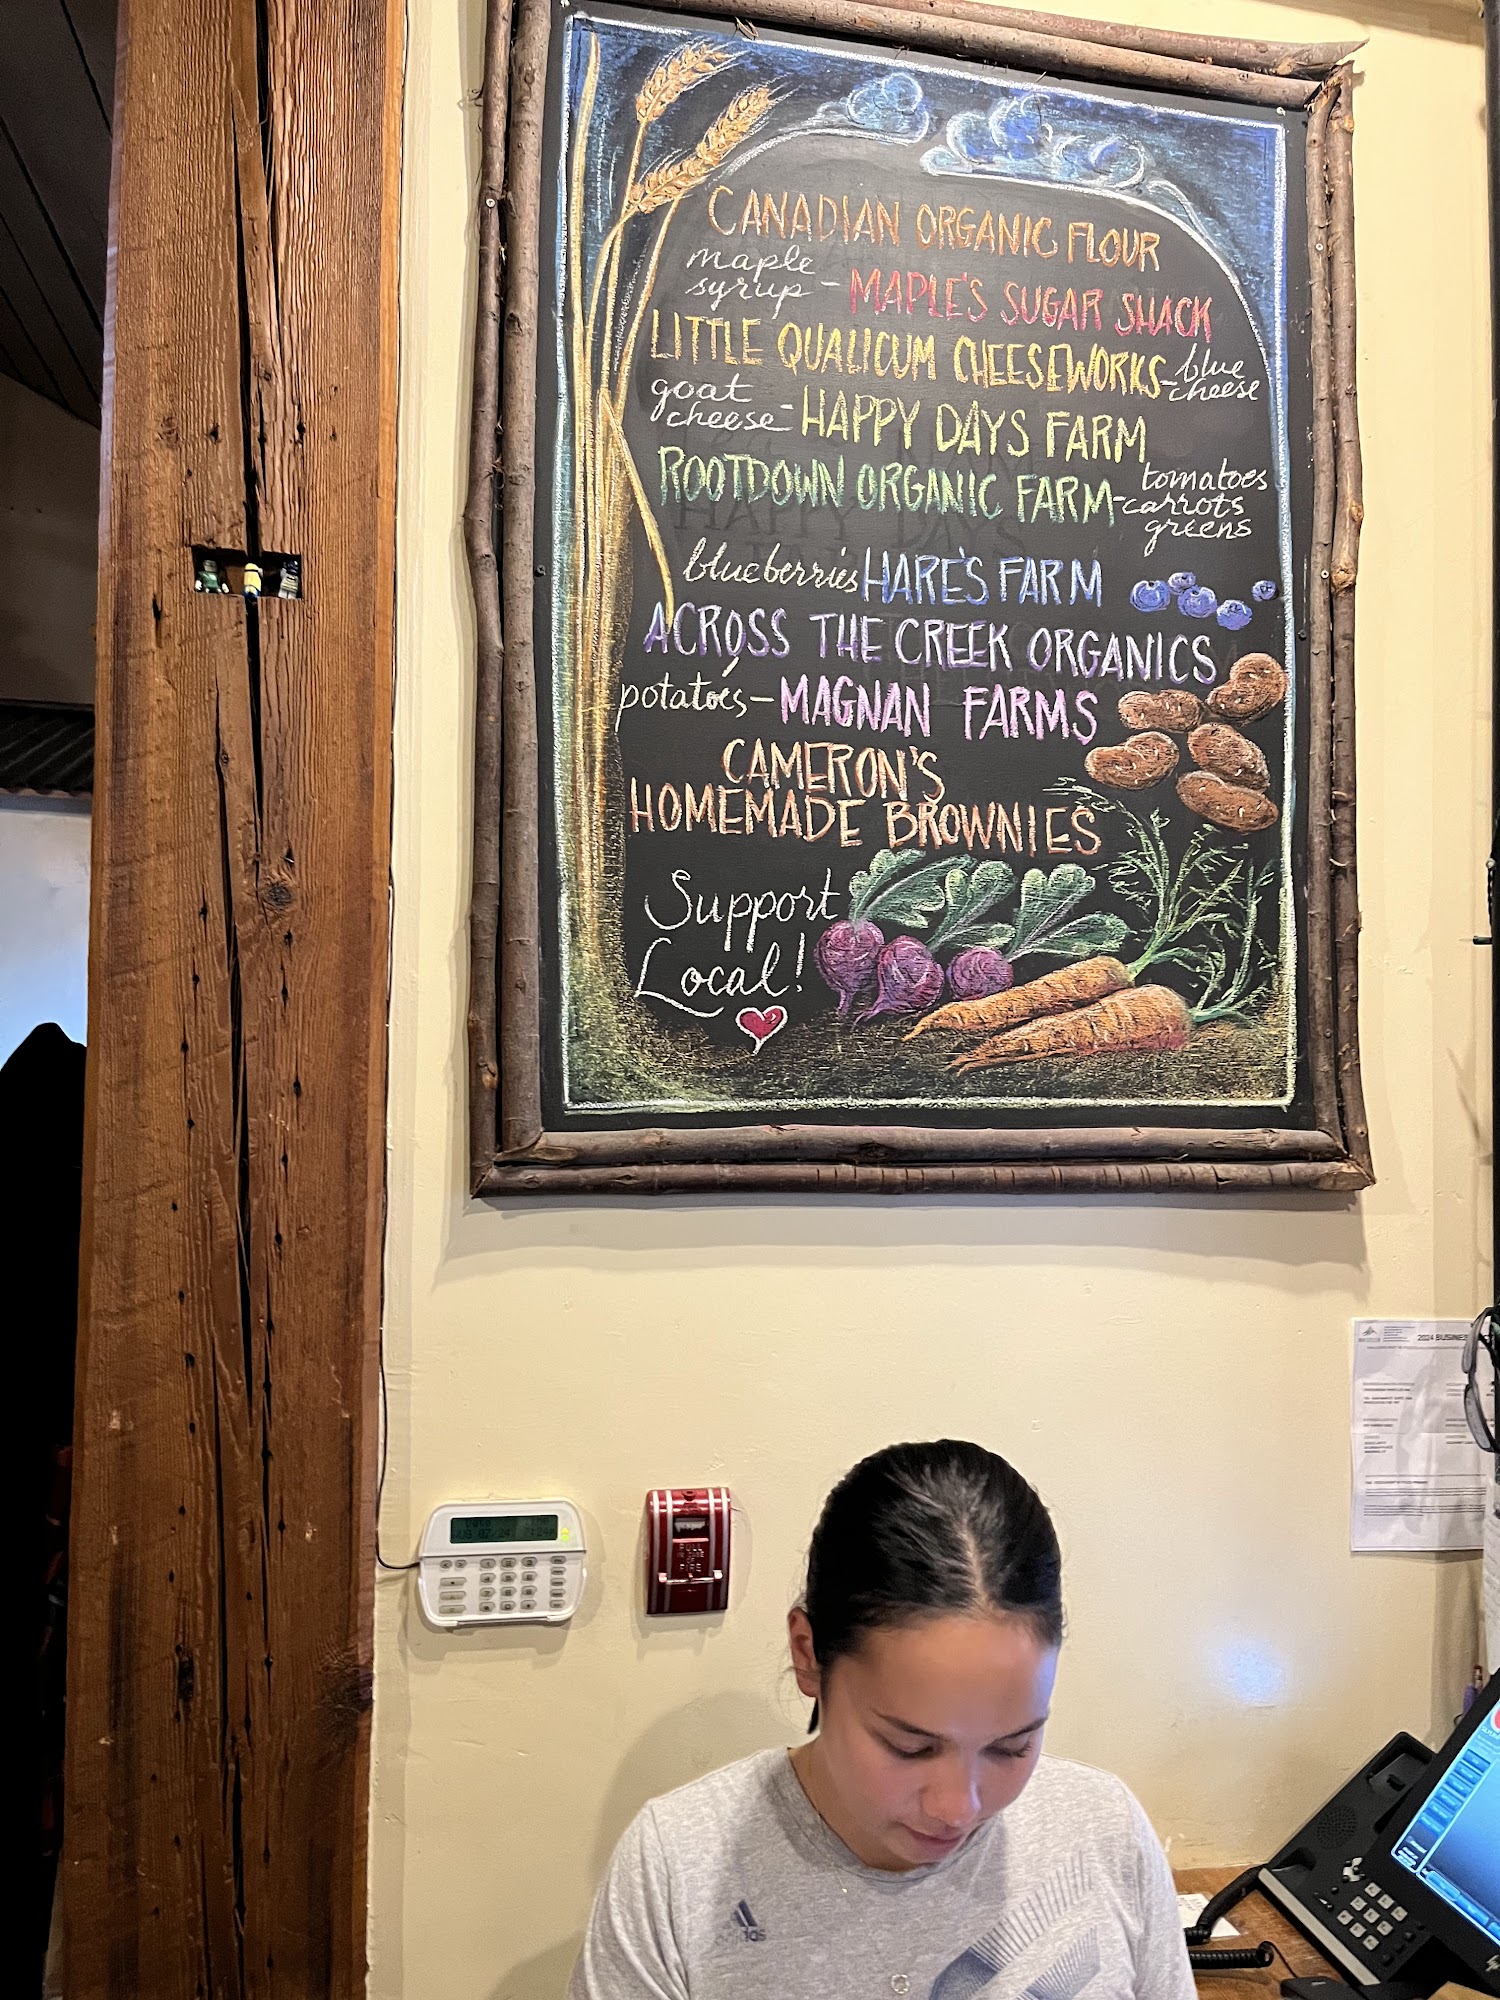 CANADIAN ORGANIC FLOUR
maple
syrup - MAPLE'S SUGAR SHACK
LITTLE QUALICUM CHEESEWORKS - blue
cheese
goat
cheese - HAPPY DAYS FARM
ROOTDOWN ORGANIC FARM - tomatoes
carrots
greens
blueberries HARE'S FARM
ACROSS THE CREEK ORGANICS
potatoes - MAGNAN FARMS
CAMERON'S
HOMEMADE BROWNIES
Support
Local!
2024 BUSINES
PULL
IN CASE
OF
FIRE
adidas
hp